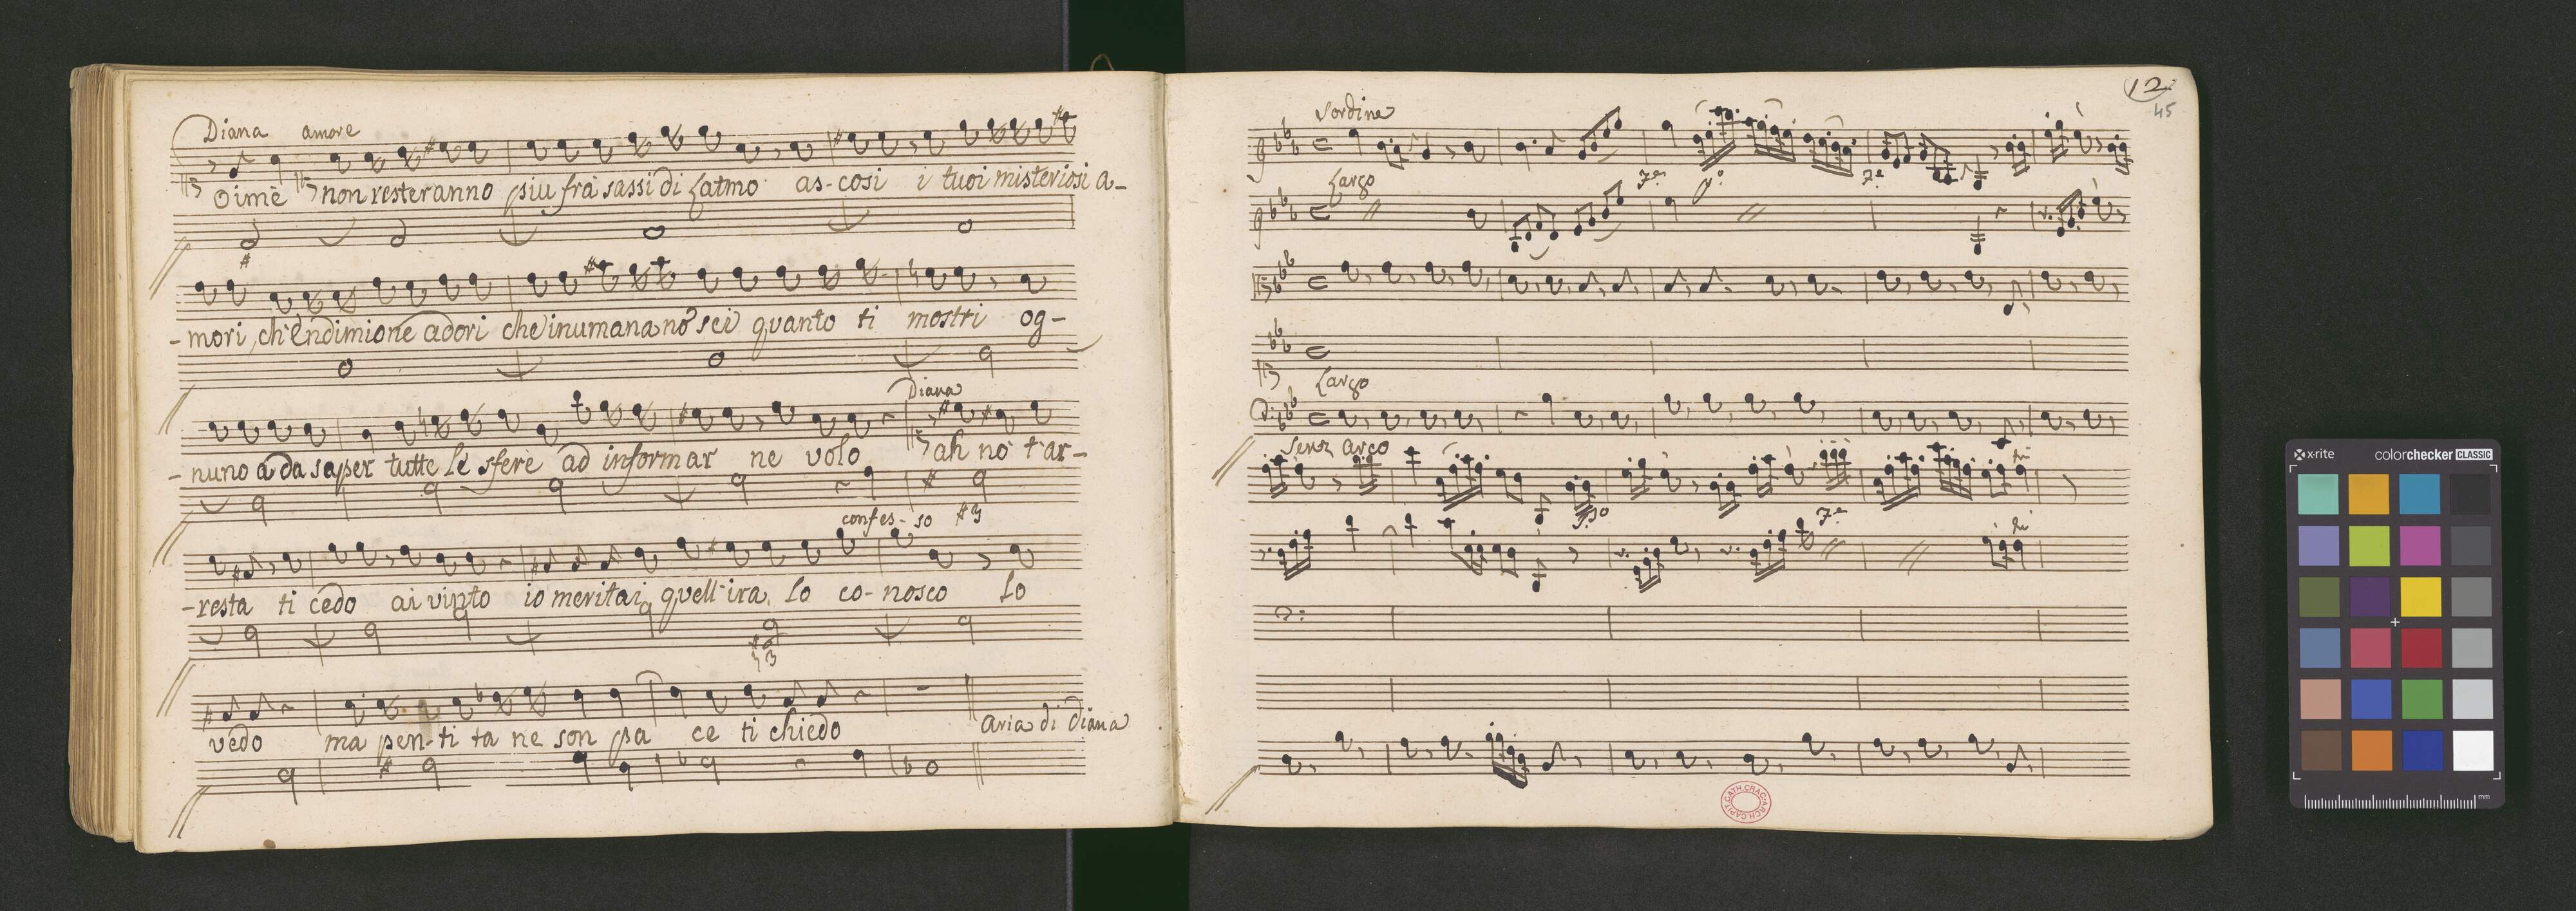 Diana amore
Oimè non resteranno piu frà sassi di Latmo as-cosi i tuoi misteriosi a-
-mori, ch'Endimione adori che inumana nõ sei quanto ti mostri og-
Diana
-nuno a da saper tutte le sfere ad informar ne volo ah nõ t'ar-
confes-so
-resta ti cedo ai vinto io meritai quell'ira. Lo co-nosco Lo
vedo ma pen-ti ta ne son pa ce ti chiedo Aria di Diana
12
45
Sordine
Largo
Largo
Senz arco
x-rite colorchecker CLASSIC
mm